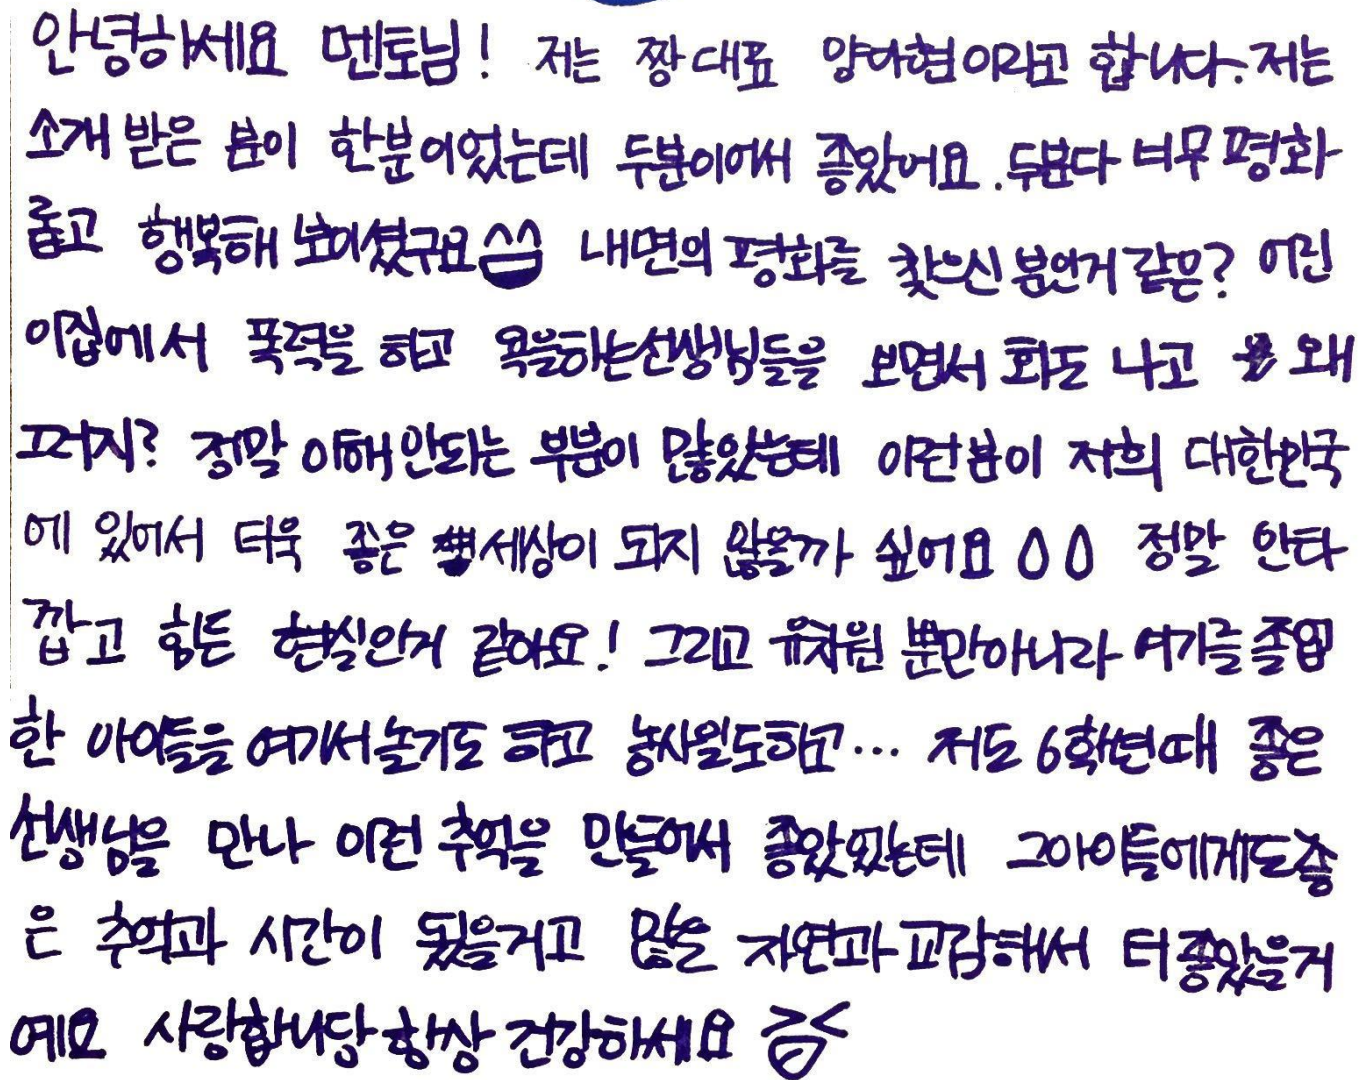 안녕하세요 멘토님! 저는 짱 대표 양아협이라고 합니다. 저는
소개 받은 분이 한분이었는데 두분이어서 좋았어요. 두분다 너무 평화
롭고 행복해 보이셨구요 내면의 평화를 찾으신 분인거 같은? 어린
이집에서 폭력을 하고 욕을하는선생님들을 보면서 화도 나고 왜
그러지? 정말 이해안되는 부분이 많았는데 이런분이 저희 대한민국
에 있어서 더욱 좋은 세상이 되지 않을까 싶어요 정말 안타
깝고 힘든 현실인거 같아요! 그리고 유치원 뿐만아니라 여기를 졸업
한 아이들을 여기서 놀기도 하고 농사일도하고... 저도 6학년때 좋은
선생님을 만나 이런 추억을 만들어서 좋았었는데 그아이들에게도좋
은 추억과 시간이 됬을거고 많은 자연과 교감해서 더좋았을거
예요 사랑합니당 항상 건강하세요